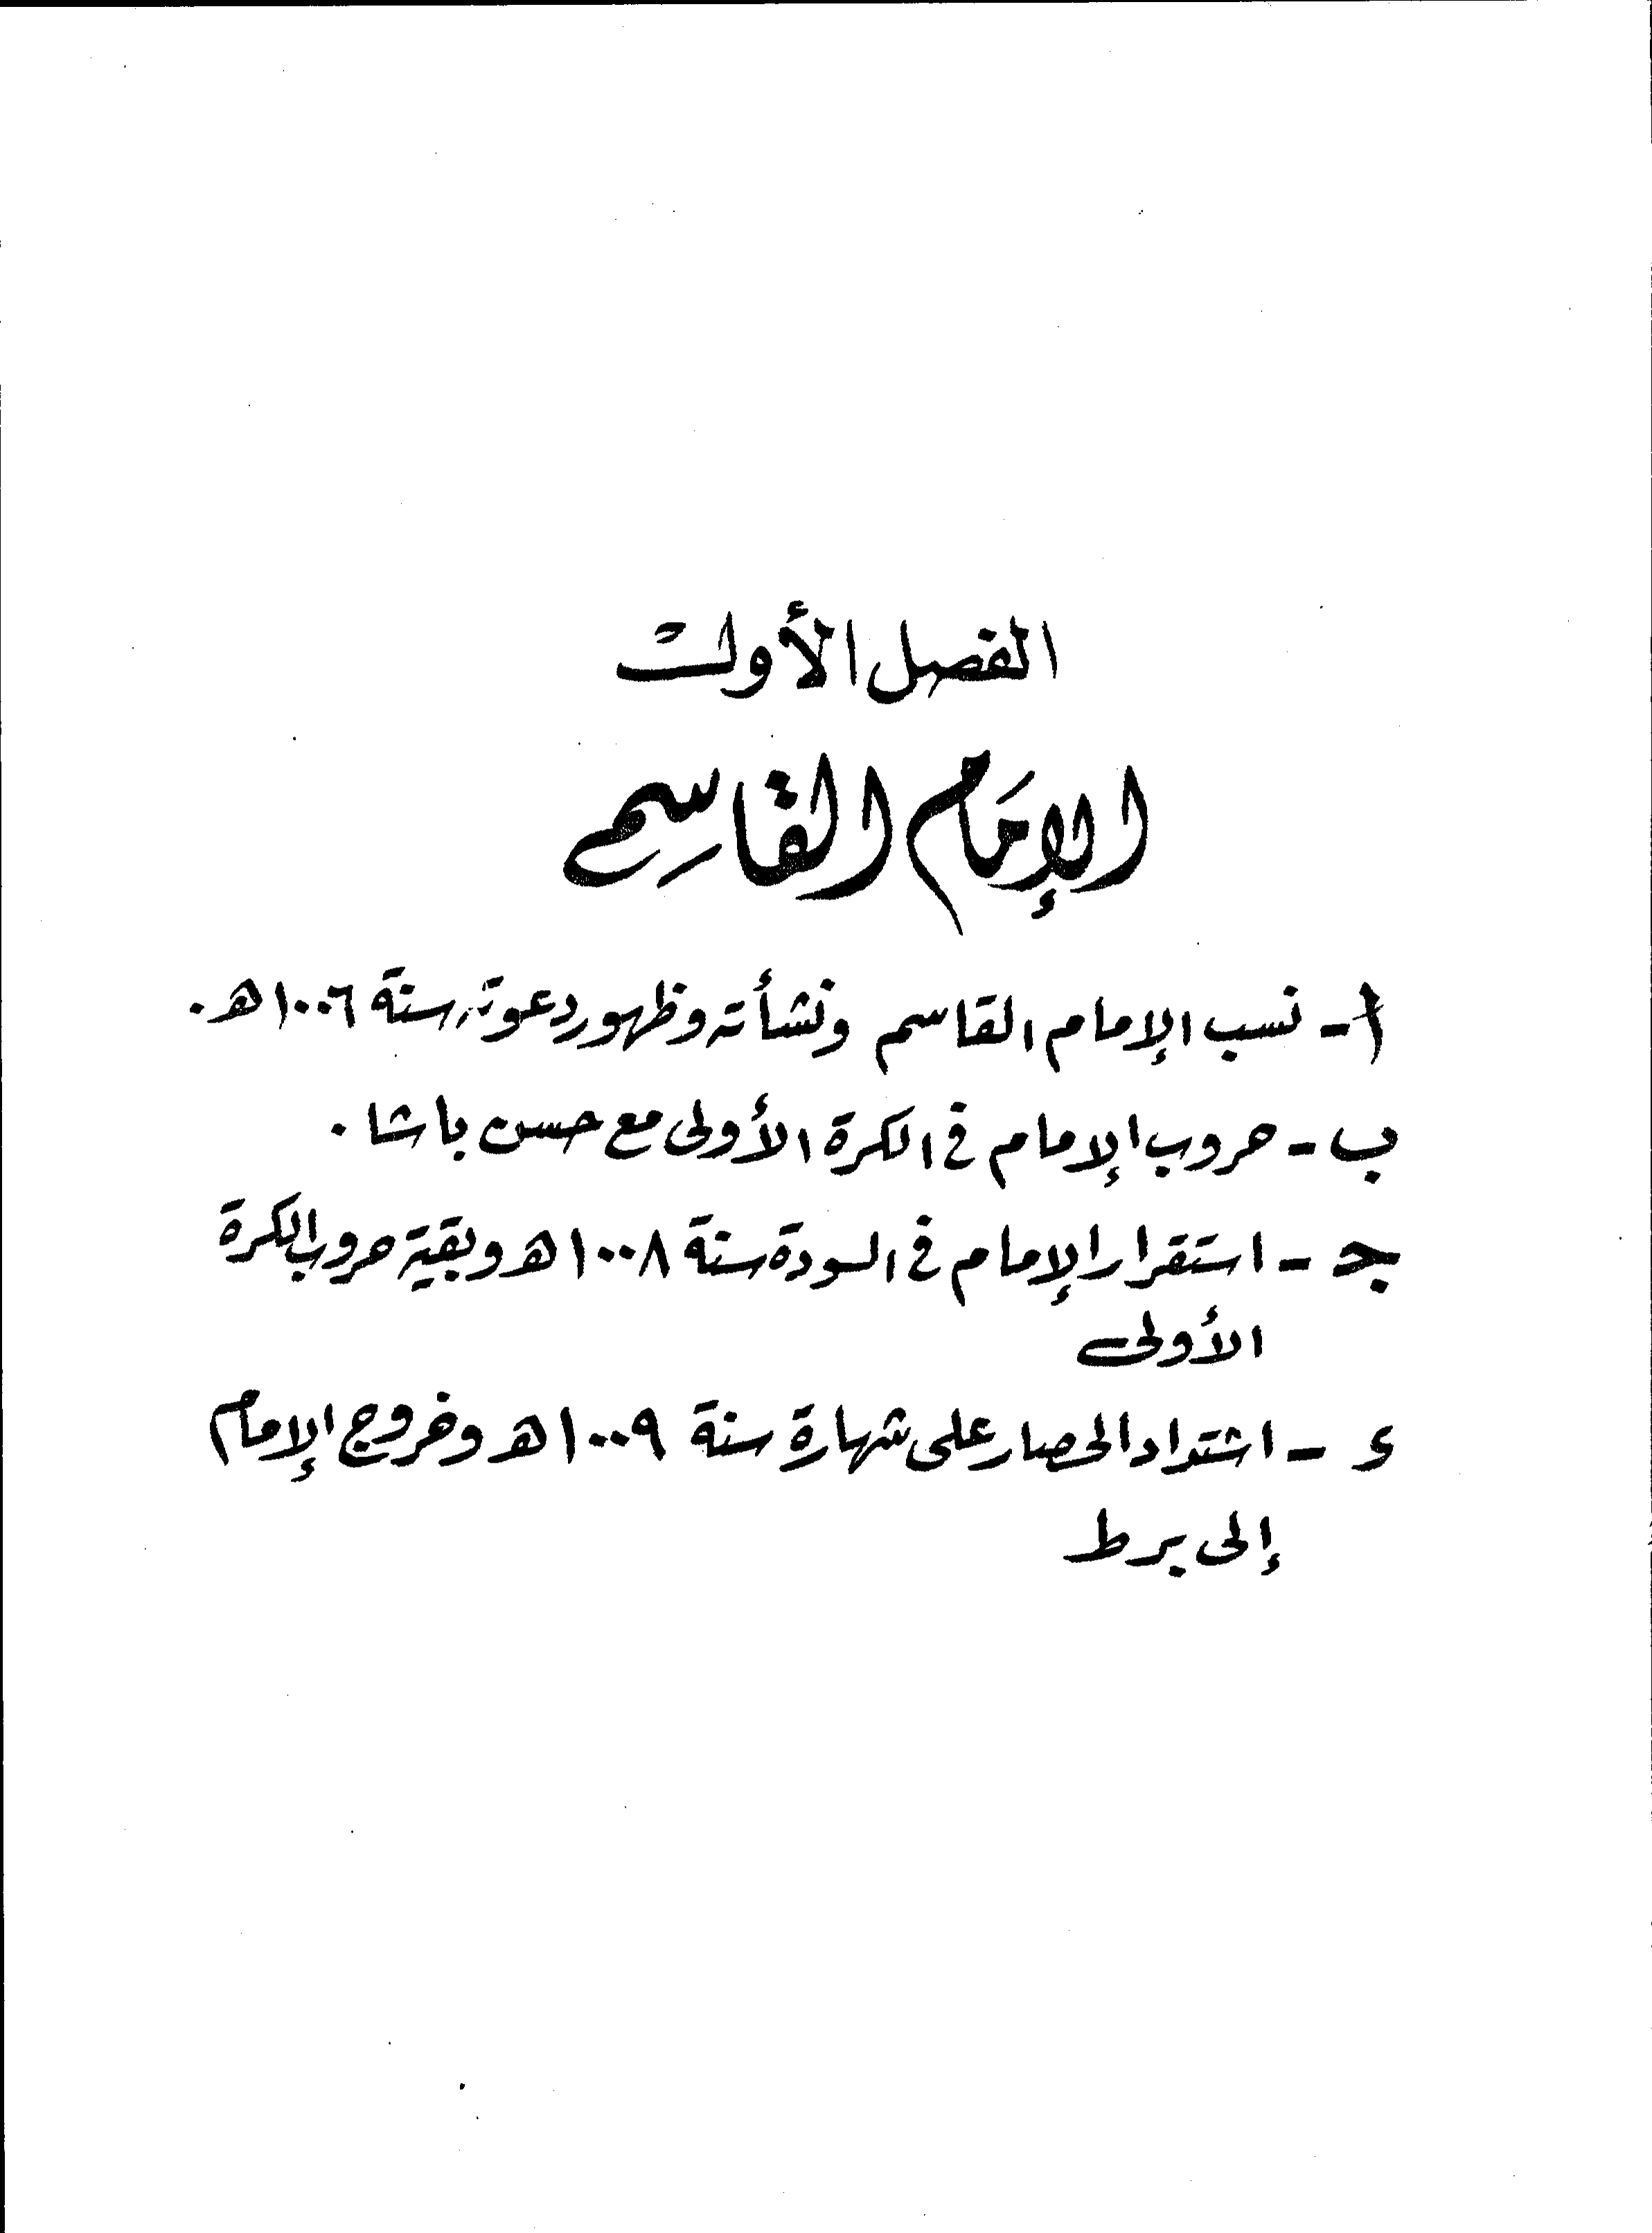 الفصل الأول
الإمَام القاسِم
أ - نسب الإمام القاسم ونشأته وظهور دعوته سنة ١٠٠٦ هـ .
ب - حروب الإمام في الكرة الأولى مع حسن باشا .
جـ - استقرار الإمام في السودة سنة ١٠٠٨ هـ وبقية حروب الكرة
الأولى
د - اشتداد الحصار على شهارة سنة ١٠٠٩ هـ وخروج الإمام
إلى برط